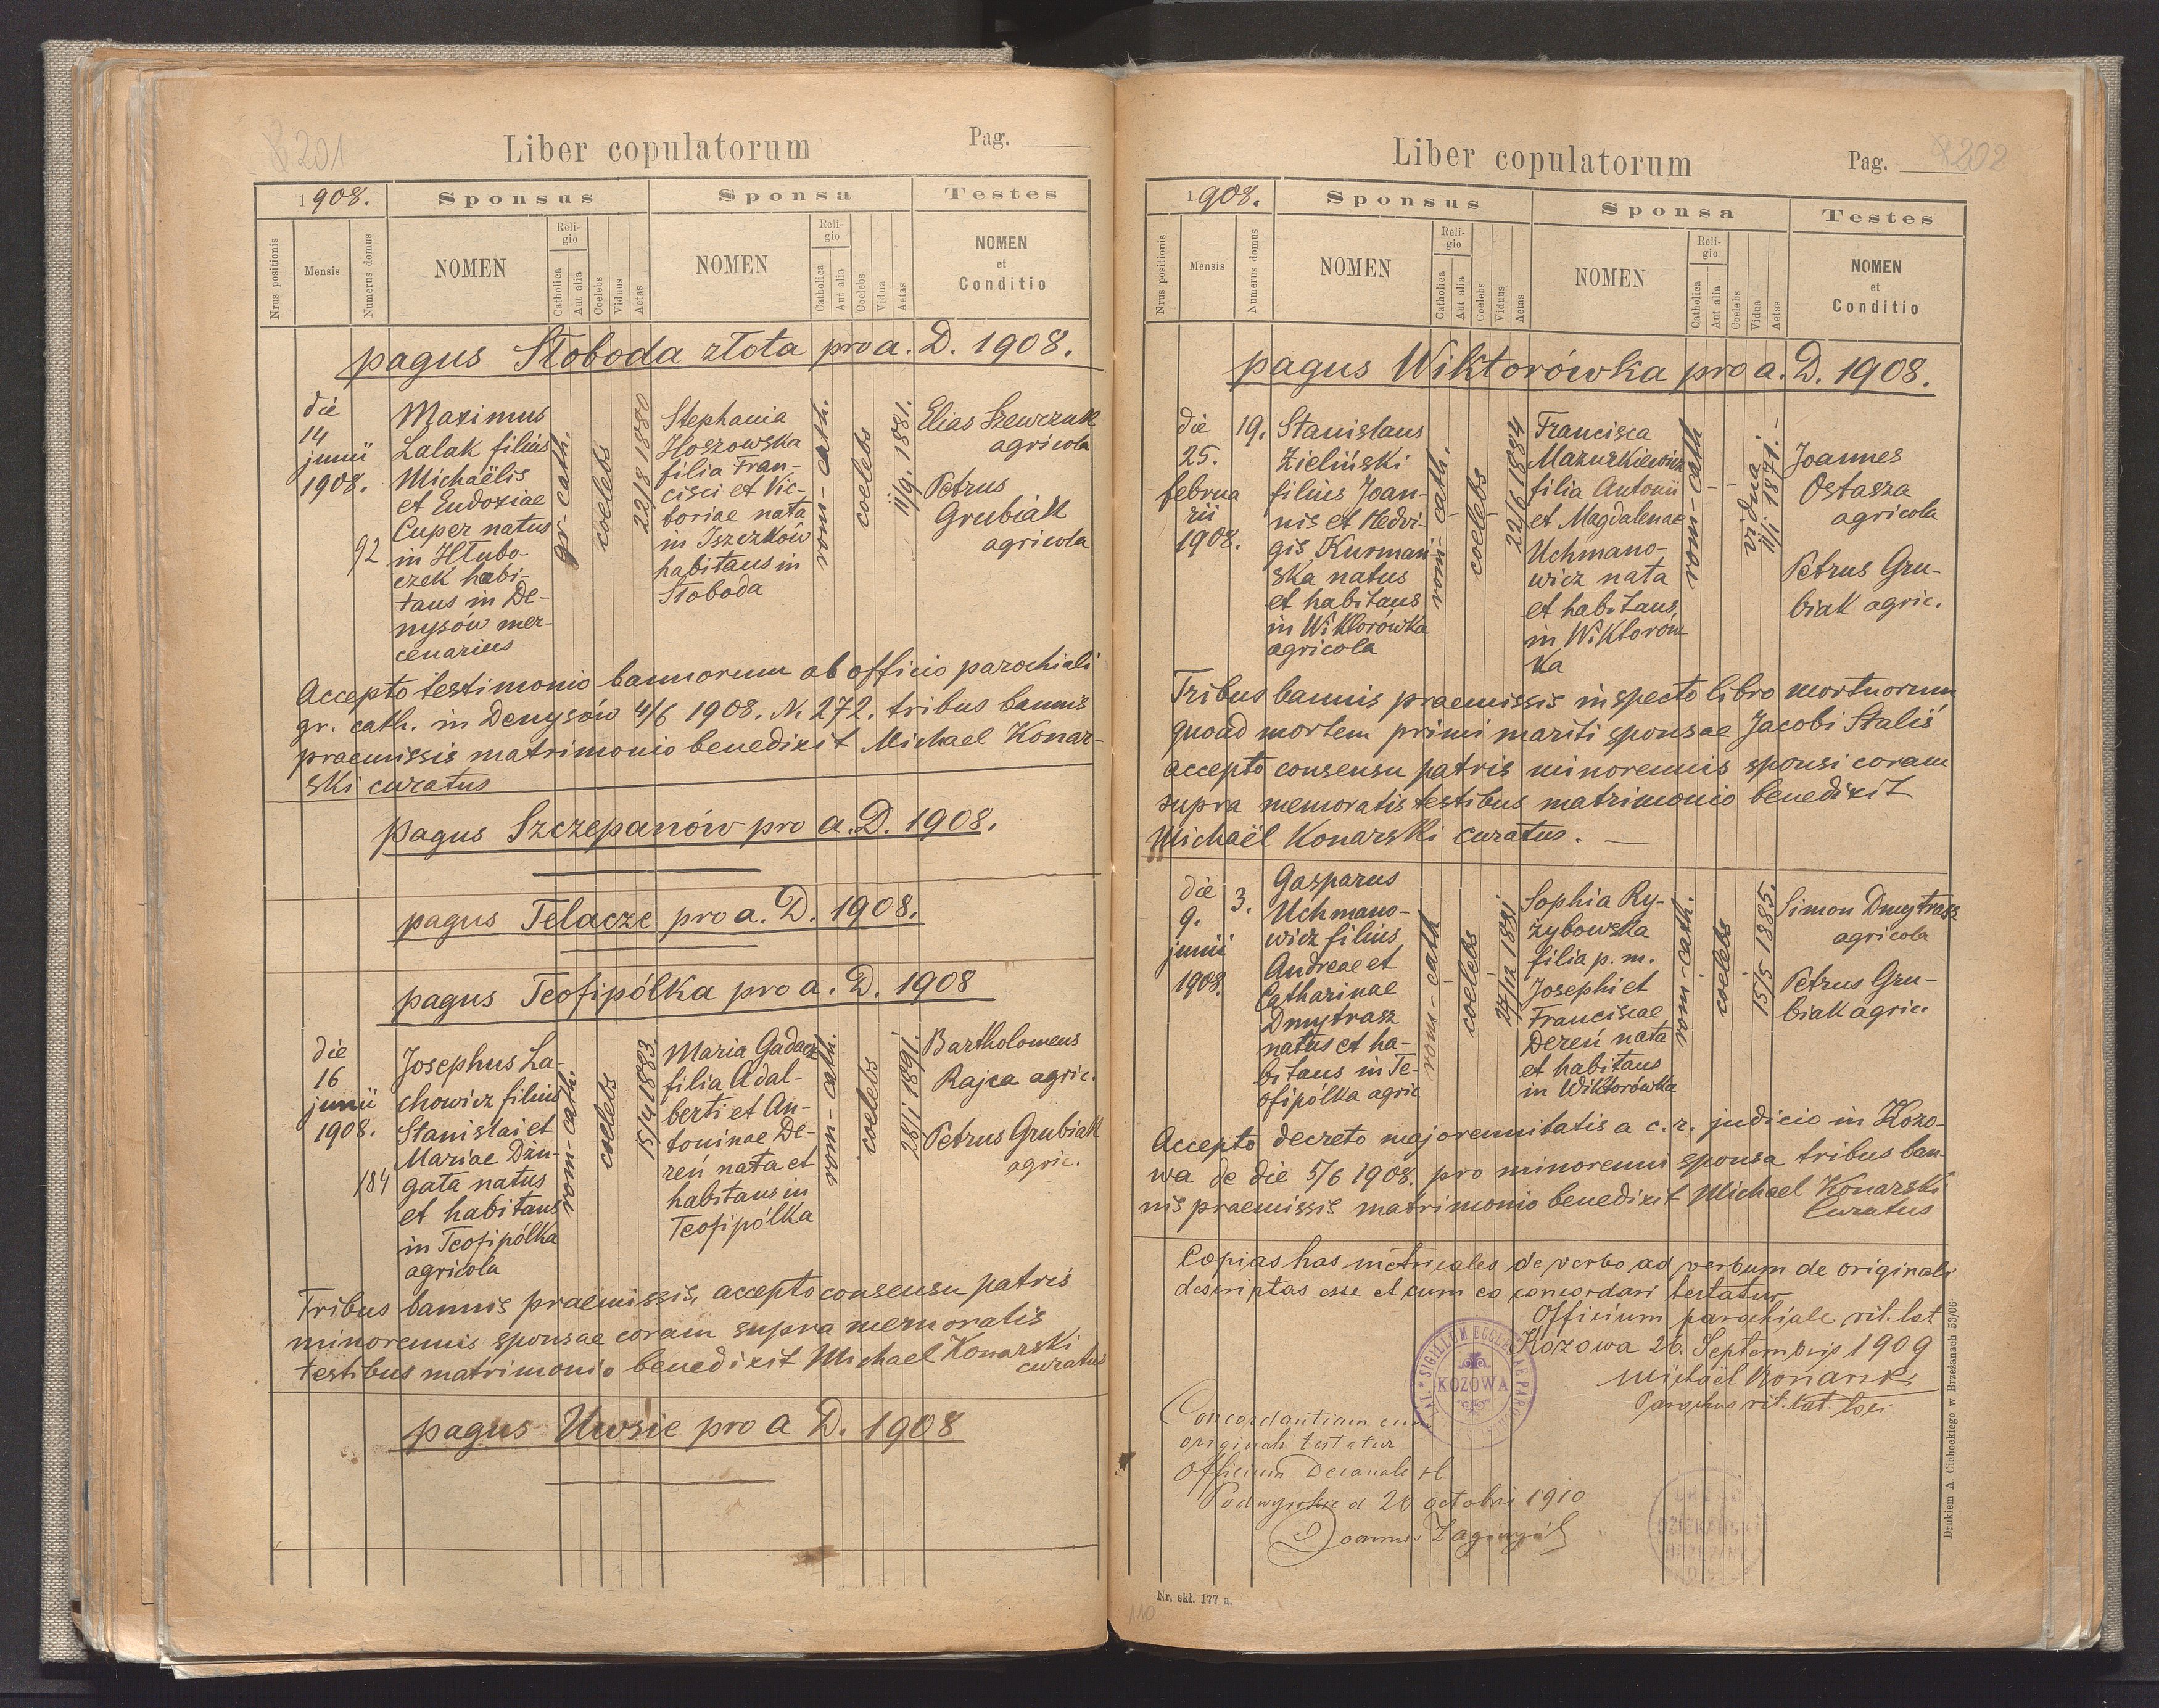 201
Liber copulatorum
Pag.
1908.
Sponsus
Sponsa
Testes
Nrus positionis
Mensis
Numerus domus
NOMEN
Reli-
gio
Catholica
Aut alia
Coelebs
Viduus
Aetas
NOMEN
Reli-
gio
Catholica
Aut alia
Coelebs
Vidua
Aetas
NOMEN
et
Conditio
pagus Słoboda złota pro a. D. 1908.
die
14
junii
1908.
92
Maximus
Lalak filius
Michaëlis
et Eudoxiae
Cuper natus
in Hłubo-
czek habi-
tans in De-
nysów mer-
cenarius
gr. cath.
coelebs
22/8 1880
Stephania
Hoszowska
filia Fran-
cisci et Vic-
toriae nata
in Iszczków
habitans in
Słoboda
rom-cath.
coelebs
11/9. 1881.
Elias Szewczuk
agricola
Petrus
Grubiak
agricola
Accepto testimonio bannorum ab officio parochiali
gr. cath. in Denysów 4/6 1908. N. 272. tribus bannis
praemissis matrimonio benedixit Michael Konar-
ski curatus
pagus Szczepanów pro a. D. 1908.
pagus Telacze pro a. D. 1908.
pagus Teofipólka pro a. D. 1908
die
16
junii
1908.
184
Josephus La-
chowicz filius
Stanislai et
Mariae Dżu-
gata natus
et habitans
in Teofipólka
agricola
rom-cath.
coelebs
15/4 1883
Maria Gadacz
filia Adal-
berti et An-
toninae De-
reń nata et
habitans in
Teofipólka
rom-cath.
coelebs
28/i 1891.
Bartholomeus
Rajca agric.
Petrus Grubiak
agric.
Tribus bannis praemissis, accepto consensu patris
minorennis sponsae coram supra memoratis
testibus matrimonio benedixit Michael Konarski
curatus
pagus Uwsie pro a D. 1908
Liber copulatorum
Pag.
202
1908.
Sponsus
Sponsa
Testes
Nrus positionis
Mensis
Numerus domus
NOMEN
Reli-
gio
Catholica
Aut alia
Coelebs
Viduus
Aetas
NOMEN
Reli-
gio
Catholica
Aut alia
Coelebs
Vidua
Aetas
NOMEN
et
Conditio
pagus Wiktorówka pro a. D. 1908.
die
25.
februa
rii
1908.
19.
Stanislaus
Zieliński
filius Joan-
nis et Hedvi-
gis Kurman-
ska natus
et habitans
in Wiktorówka
agricola
rom-cath.
coelebs
22/6 1884
Francisca
Mazurkiewicz
filia Antonii
et Magdalenae
Uchmano-
wicz nata
et habitans,
in Wiktorów
ka
rom-cath
vidua
11/i 1871.-
Joannes
Ostasza
agricola
Petrus Gru-
biak agric.
Tribus bannis praemissis inspecto libro mortuorum
quoad mortem primi mariti sponsae Jacobi Staliś
accepto consensu patris minorennis sponsi coram
supra memoratis testibus matrimonio benedixit
Michaël Konarski curatus.
die
9.
junii
1908.
3.
Gasparus
Uchmano-
wicz filius
Andreae et
Catharinae
Dmytrasz
natus et ha-
bitans in Te-
ofipólka agric
rom-cath
coelebs
27/12 1881
Sophia Ry-
żybowska
filia p. m.
Josephi et
Franciscae
Dereń nata
et habitans
in Wiktorówka
rom-cath.
coelebs
15/5 1885.
Simon Dmytrasz
agricola
Petrus Gru-
biak agric.
Accepto decreto majorennitatis a c. r. judicio in Kozo-
wa de die 5/6 1908. pro minorenni sponsa tribus ban-
nis praemissis matrimonio benedixit Michael Konarski
Curatus
Copias has metricales de verbo ad verbum de originali
descriptas esse et cum eo concordari testatur
Officium parochiale rit. lat
Kozowa 26. Septembris 1909
Michaël Konarski
Parochus rit. lat. loci
KOZOWA
Concordantiam cum
originali testatur
Officium Decanale rl
Podwysokie d 20 octobris 1910
Drukiem A. Ciehockiego w Brzeżanach 53/06.
Nr. skł. 177 a.
110